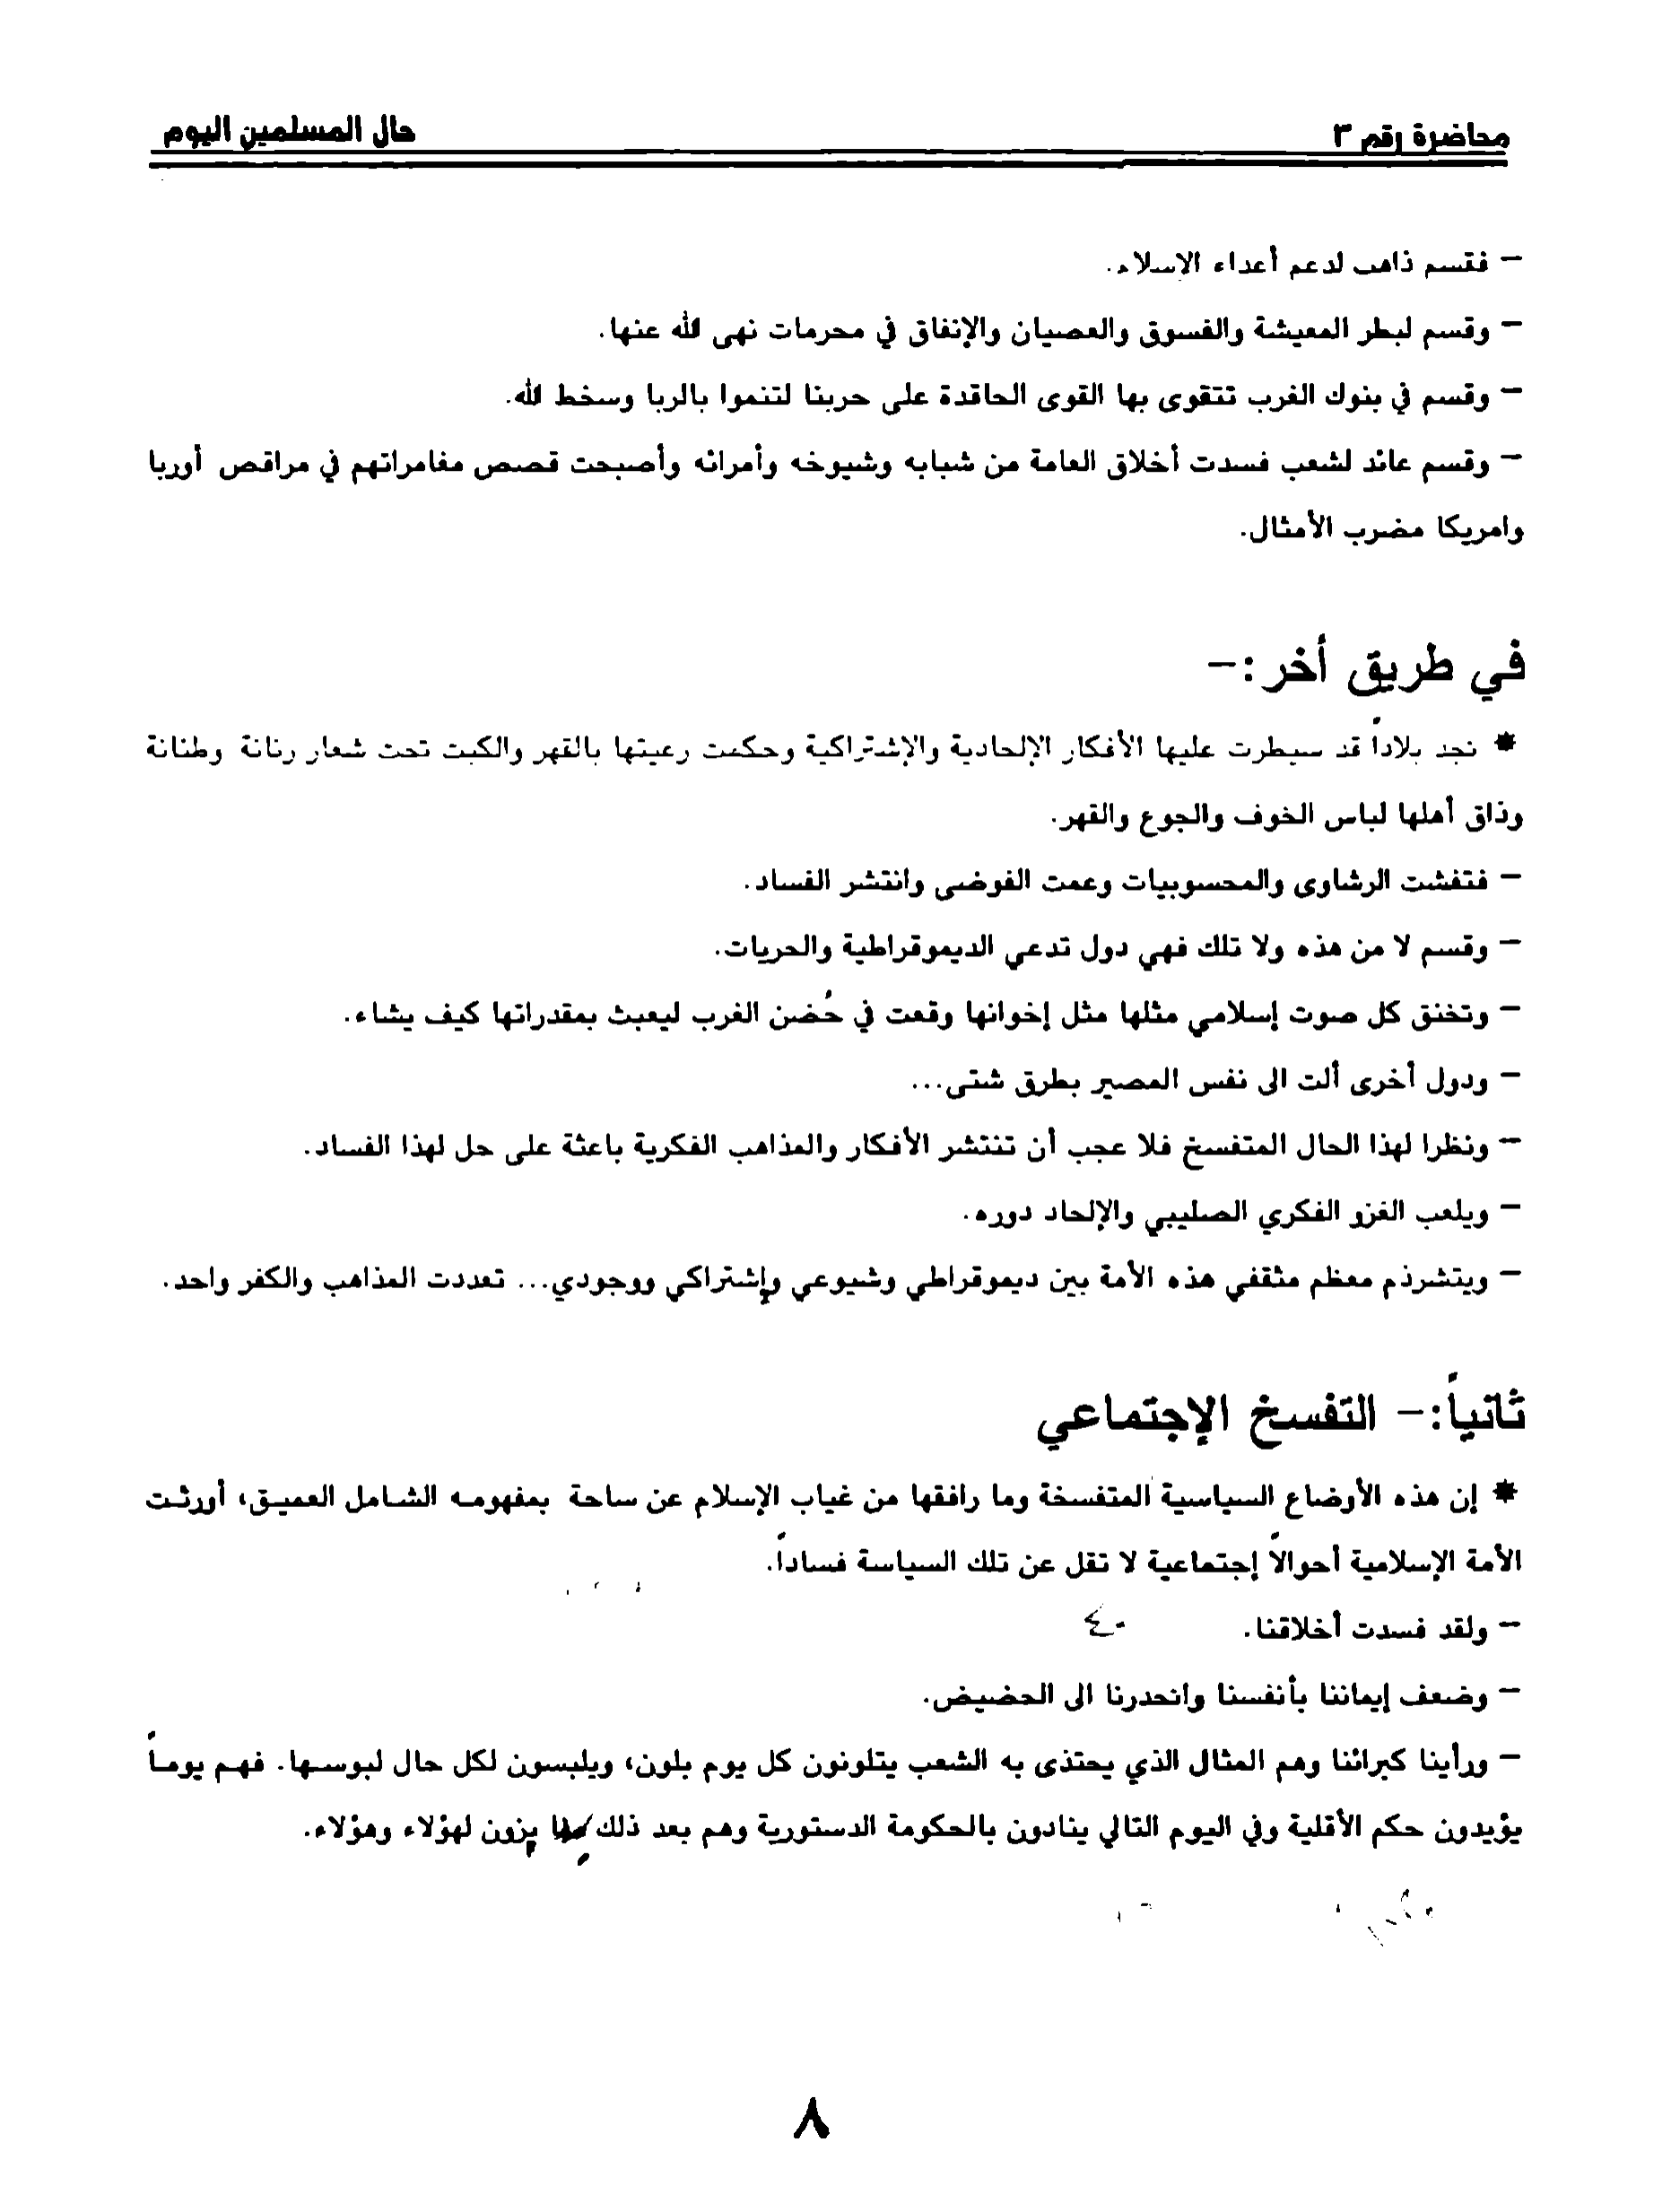 محاضرة رقم ٣
حال المسلمين اليوم
– فقسم ذاهب لدعم أعداء الإسلام.
– وقسم لبطر المعيشة والفسوق والعصيان والإنفاق في محرمات نهى الله عنها.
– وقسم في بنوك الغرب تتقوى بها القوى الحاقدة على حربنا لتنموا بالربا وسخط الله.
– وقسم عائد لشعب فسدت أخلاق العامة من شبابه وشيوخه وأمرائه وأصبحت قصص مغامراتهم في مراقص أوربا
وامريكا مضرب الأمثال.
في طريق أخر:–
* نجد بلاداً قد سيطرت عليها الأفكار الإلحادية والإشتراكية وحكمت رعيتها بالقهر والكبت تحت شعار رنانة وطنانة
وذاق أهلها لباس الخوف والجوع والقهر.
– فتفشت الرشاوى والمحسوبيات وعمت الفوضى وانتشر الفساد.
– وقسم لا من هذه ولا تلك فهي دول تدعي الديموقراطية والحريات.
– وتخنق كل صوت إسلامي مثلها مثل إخوانها وقعت في حُضن الغرب ليعبث بمقدراتها كيف يشاء.
– ودول أخرى ألت الى نفس المصير بطرق شتى...
– ونظرا لهذا الحال المتفسخ فلا عجب أن تنتشر الأفكار والمذاهب الفكرية باعثة على حل لهذا الفساد.
– ويلعب الغزو الفكري الصليبي والإلحاد دوره.
– ويتشرذم معظم مثقفي هذه الأمة بين ديموقراطي وشيوعي وإشتراكي ووجودي... تعددت المذاهب والكفر واحد.
ثانياً:– التفسخ الإجتماعي
* إن هذه الأوضاع السياسية المتفسخة وما رافقها من غياب الإسلام عن ساحة بمفهومه الشامل العميق، أورثت
الأمة الإسلامية أحوالاً إجتماعية لا تقل عن تلك السياسة فساداً.
– ولقد فسدت أخلاقنا.
– وضعف إيماننا بأنفسنا وانحدرنا الى الحضيض.
– ورأينا كبرائنا وهم المثال الذي يحتذى به الشعب يتلونون كل يوم بلون، ويلبسون لكل حال لبوسها. فهم يوماً
يؤيدون حكم الأقلية وفي اليوم التالي ينادون بالحكومة الدستورية وهم بعد ذلك لهؤلاء وهؤلاء.
٨